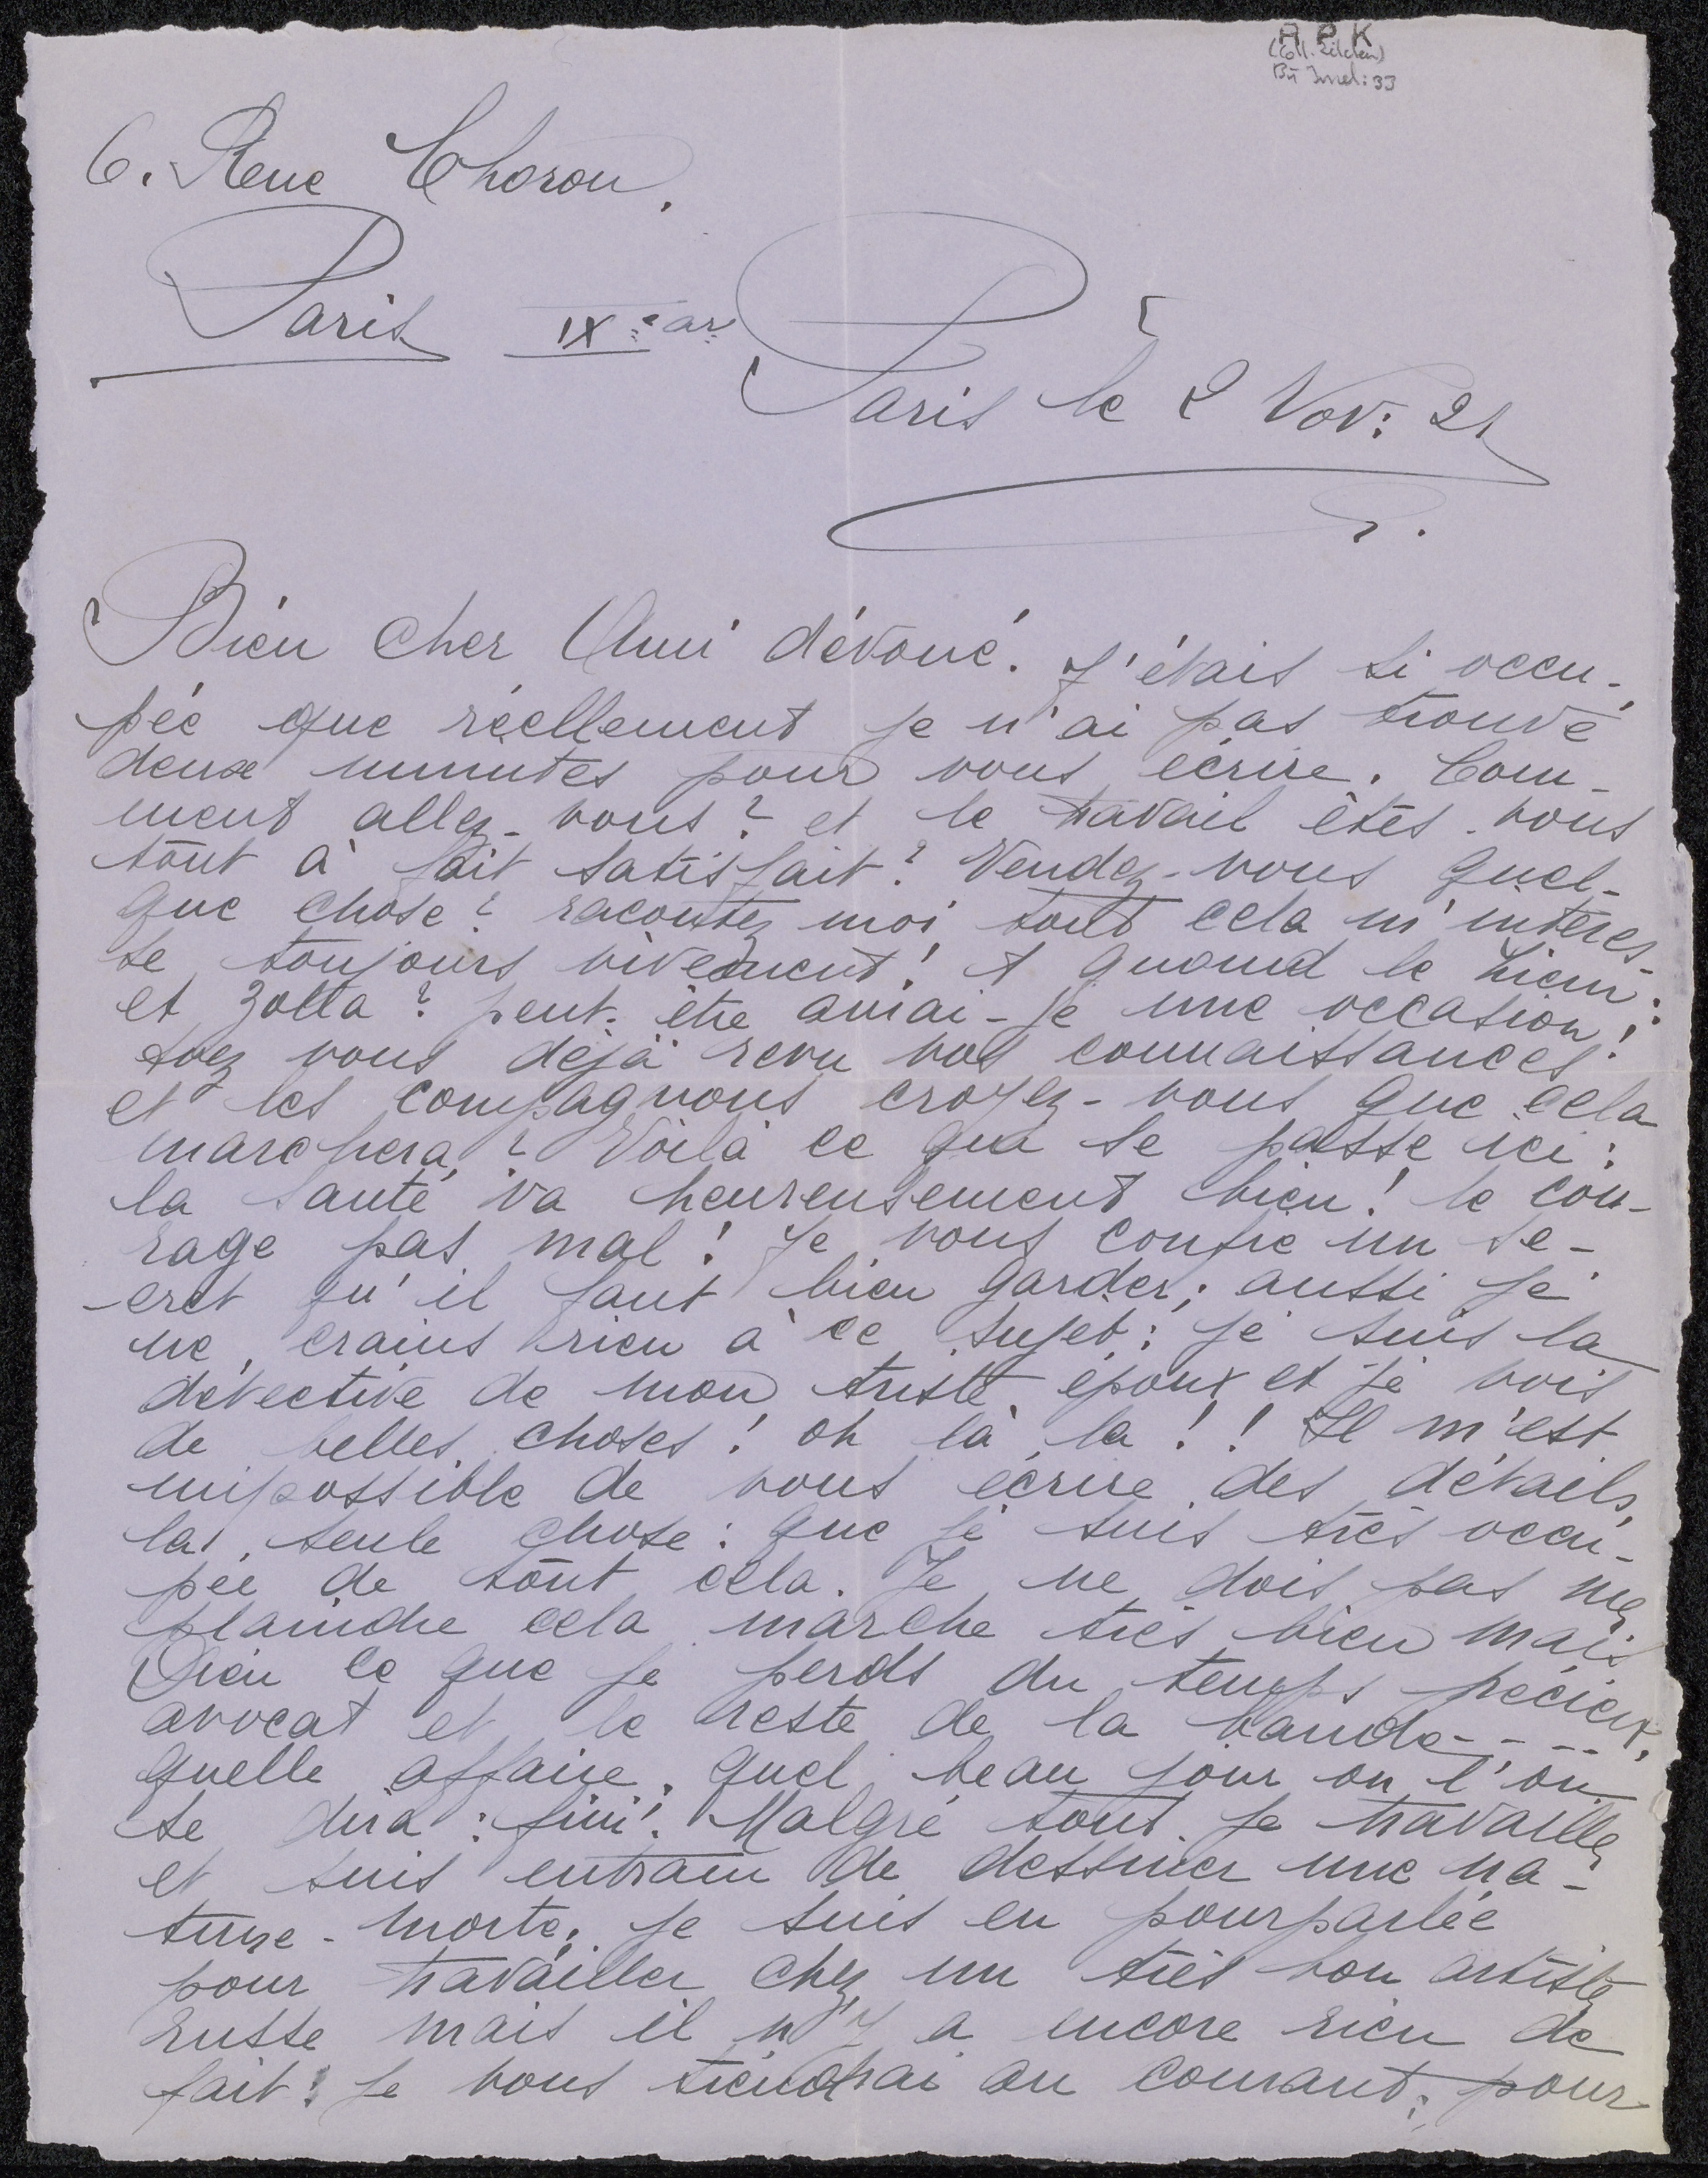 A P K
(Coll. Eilden)
Bü Imel: 33
6. Rue Choron,
Paris IX:e ar:
Paris le 2 Nov: 21
Bien cher Ami dévoué. J'étais si occu-
pée que réellement je n'ai pas trouvé
deux minutes pour vous écrire. Com-
ment allez-vous? et le travail êtes-vous
tout à fait satisfait? Vendez-vous quel-
que chose? racontez moi tout cela m'intéres-
se toujours vivement! A quand le
et Zotta? peut-être aurai-je une occasion!
avez vous déjà revu vos connaissances!
et les compagnons croyez-vous que cela
marchera? Voilà ce qui se passe ici:
la santé va heureusement bien! le cou-
rage pas mal! Je vous confie un se-
-cret qu'il faut bien garder; aussi je
ne crains rien à ce sujet: je suis la
détective de mon triste époux et je vois
de belles choses! oh là la!! Il m'est
impossible de vous écrire des détails,
la seule chose: que je suis très occu-
pée de tout cela. Je ne dois pas me
plaindre cela marche très bien mais
Dieu ce que je perds du temps précieux,
avocat et le reste de la bande----
quelle affaire. quel beau jour ou l'on
se dira: fini! Malgré tout je travaille
et suis entrain de dessiner une na-
ture-morte, je suis en pourparlée
pour travailler chez un très bon artiste
russe mais il n'y a encore rien de
fait: je vous tiendrai au courant; pour